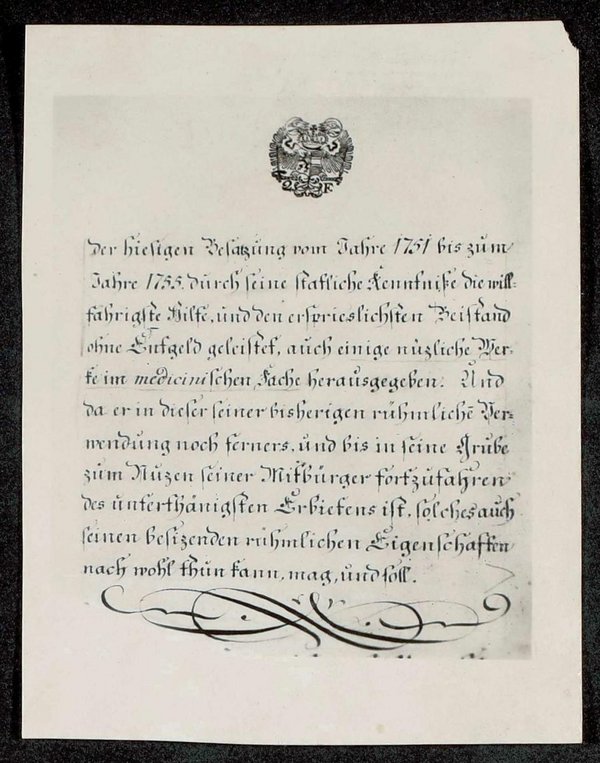 2. F.
der hiesigen Besatzung vom Jahre 1751 bis zum
Jahre 1755. durch seine statliche Kenntniße die will-
fährigste Hilfe, und den ersprieslichsten Beistand
ohne Entgeld geleistet, auch einige nüzliche Wer-
ke im medicinischen Fache herausgegeben. Und
da er in dieser seiner bisherigen rühmlichē Ver-
wendung noch ferners, und bis in seine Grube
zum Nuzen seiner Mitbürger fortzufahren
des unterthänigsten Erbietens ist, solches auch
seinen besizenden rühmlichen Eigenschaften
nach wohl thun kann, mag, und soll.